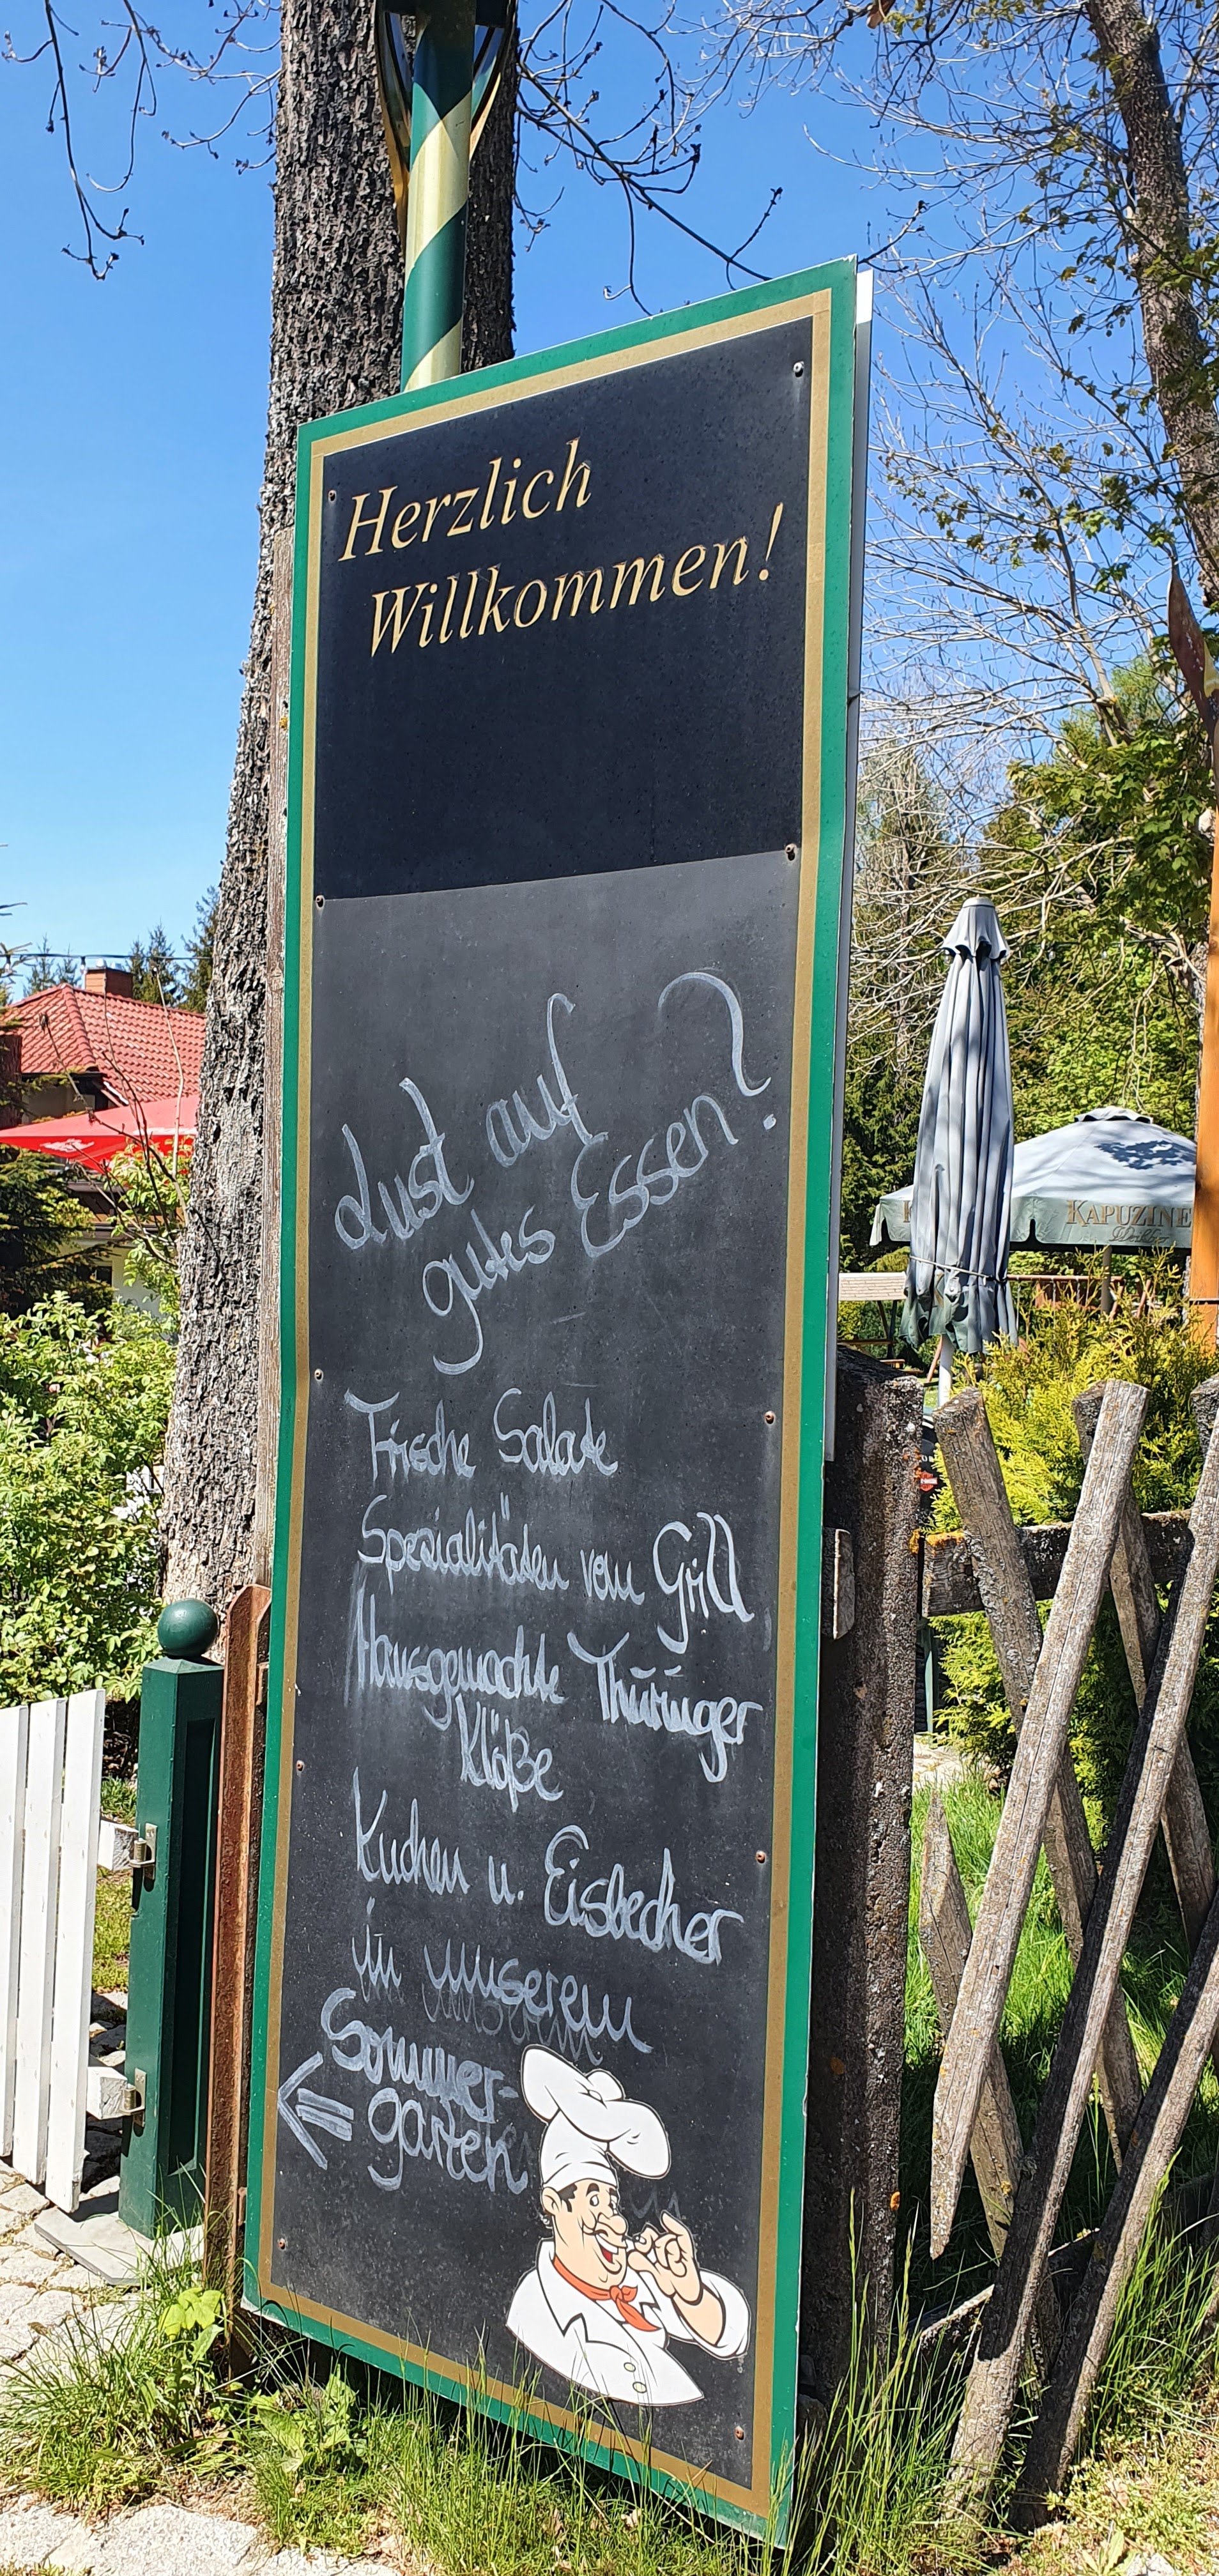 Herzlich
Willkommen!
Lust auf
gutes Essen?
Frische Salate
Spezialitäten vom Grill
Hausgemachte Thüringer
Klöße
Kuchen u. Eisbecher
in unserem
Sommer-
garten
KAPUZINE